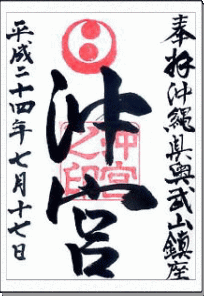 奉拝沖縄県奥武山鎮座
沖宮
沖宮之印
平成二十四年七月十七日